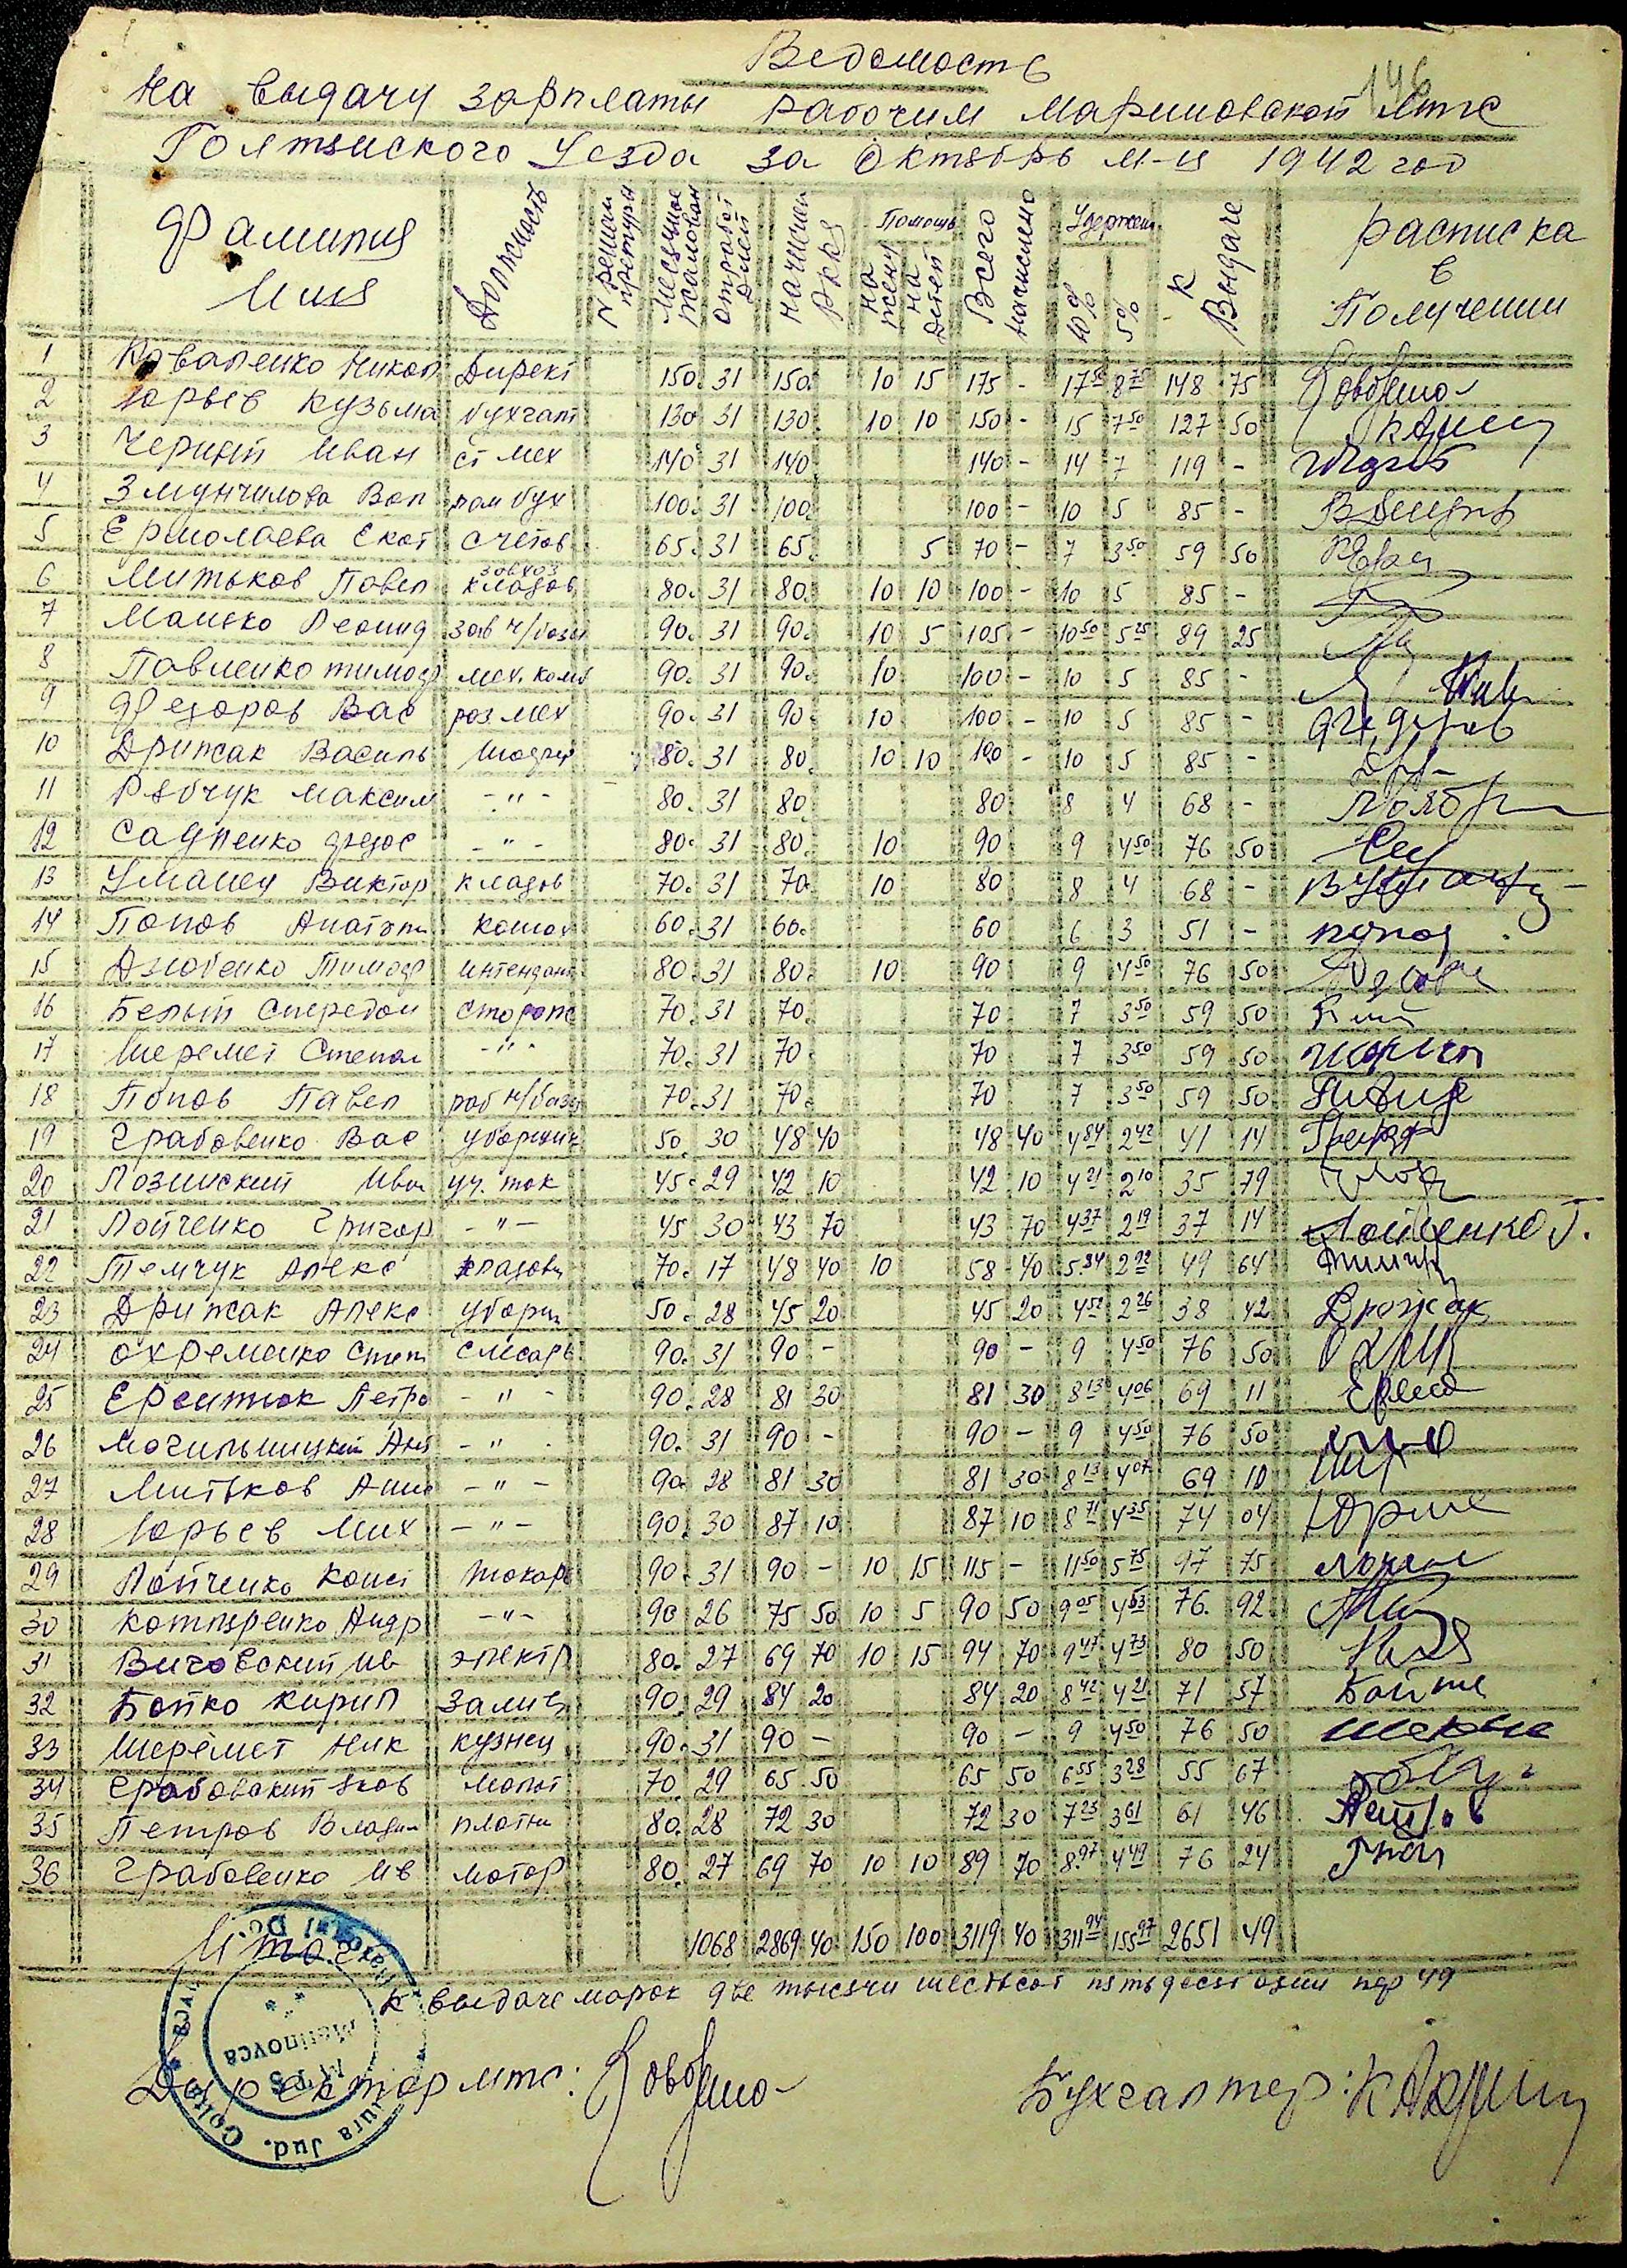 146
Ведомость
На выдачу зарплаты рабочим Мариновской мтс
Голтянского Уезда за Октябрь м-ц 1942 год
Фамилия Имя Должность N решен претуры Месячное жалован отработ дней начислен Помощь на жену на детей Всего начислено Удержан 10% 5% К Выдаче расписка в Получении
1 Коваленко Никол Директ 150. 31 150. 10 15 175 - 17 50 8 75 148 75
2 Юрьев Кузьма бухгалт 130 31 130. 10 10 150 - 15 7 50 127 50
3 Черный Иван ст мех 140 31 140 140 - 14 7 119 -
4 Змунчилова Вал пом бух 100. 31 100. 100 - 10 5 85 -
5 Ермолаева Екат счетов 65. 31 65. 5 70 - 7 3 50 59 50
6 Митьков Павел завхоз кладов 80. 31 80. 10 10 100 - 10 5 85 -
7 Манько Леонид зав н/базы 90. 31 90. 10 5 105 - 10 50 5 25 89 25
8 Павленко тимоф мех. комб 90. 31 90. 10 100 - 10 5 85 -
9 Федоров Вас раз мех 90. 31 90. 10 100 - 10 5 85 - Федоров
10 Дрижак Василь Шофер 80. 31 80. 10 10 100 - 10 5 85 -
11 Рябчук Максим -"- 80. 31 80 80 8 4 68 -
12 Сауленко федос -"- 80. 31 80. 10 90 9 4 50 76 50
13 Уманец Виктор кладов 70. 31 70. 10 80 8 4 68 -
14 Попов Анатоли конюх 60. 31 60. 60 6 3 51 - попов
15 Дзюбенко Тимоф интендант 80. 31 80. 10 90 9 4 50 76 50
16 Белый Спередон сторож 70. 31 70. 70 7 3 50 59 50
17 Шеремет Степан -"- 70. 31 70. 70 7 3 50 59 50
18 Попов Павел раб н/базы 70. 31 70. 70 7 3 50 59 50
19 Грабовенко Вас уборщик 50. 30 48 40 48 40 4 84 2 42 41 14
20 Лозинский Иван уч. ток 45. 29 42 10 42 10 4 21 2 10 35 79
21 Лойченко Григор -"- 45 30 43 70 43 70 4 37 2 19 37 14 Лойченко Г.
22 Темчук Алекс кладовщ 70. 17 48 40 10 58 40 5.84 2 92 49 64
23 Дрижак Алекс уборщ 50. 28 45 20 45 20 4 52 2 26 38 42 Дрожак
24 Охременко Степ слесарь 90. 31 90 - 90 - 9 4 50 76 50
25 Ерентюк Петро -"- 90. 28 81 30 81 30 8 13 4 06 69 11
26 Могильницкий Ант -"- 90. 31 90 - 90 - 9 4 50 76 50
27 Митьков -"- 90. 28 81 30 81 30 8 13 4 07 69 10
28 Юрьев Мих -"- 90. 30 87 10 87 10 8 71 4 35 74 04
29 Лойченко Конст токарь 90. 31 90 - 10 15 115 - 11 50 5 75 97 75
30 Котляренко Андр -"- 90 26 75 50 10 5 90 50 9 05 4 53 76. 92
31 Виговский Ив электр 80. 27 69 70 10 15 94 70 9 47 4 73 80 50
32 Бойко Кирил Залив 90. 29 84 20 84 20 8 42 4 21 71 57
33 Шеремет Ник кузнец 90. 31 90 - 90 - 9 4 50 76 50
34 Грабовский Яков молот 70. 29 65 50 65 50 6 55 3 28 55 67
35 Петров Владим плотн 80. 28 72 30 72 30 7 23 3 61 61 46 Петров
36 Грабовенко Ив мотор 80. 27 69 70 10 10 89 70 8.97 4 49 76 24
Итого 1068 2869 40 150 100 3119 40 311 94 155 97 2651 49
К выдаче марок две тысячи шестьсот пятьдесят один пф 49
Директор мтс: Бухгалтер:
M.T.S. Marinovca
Jud. Golta